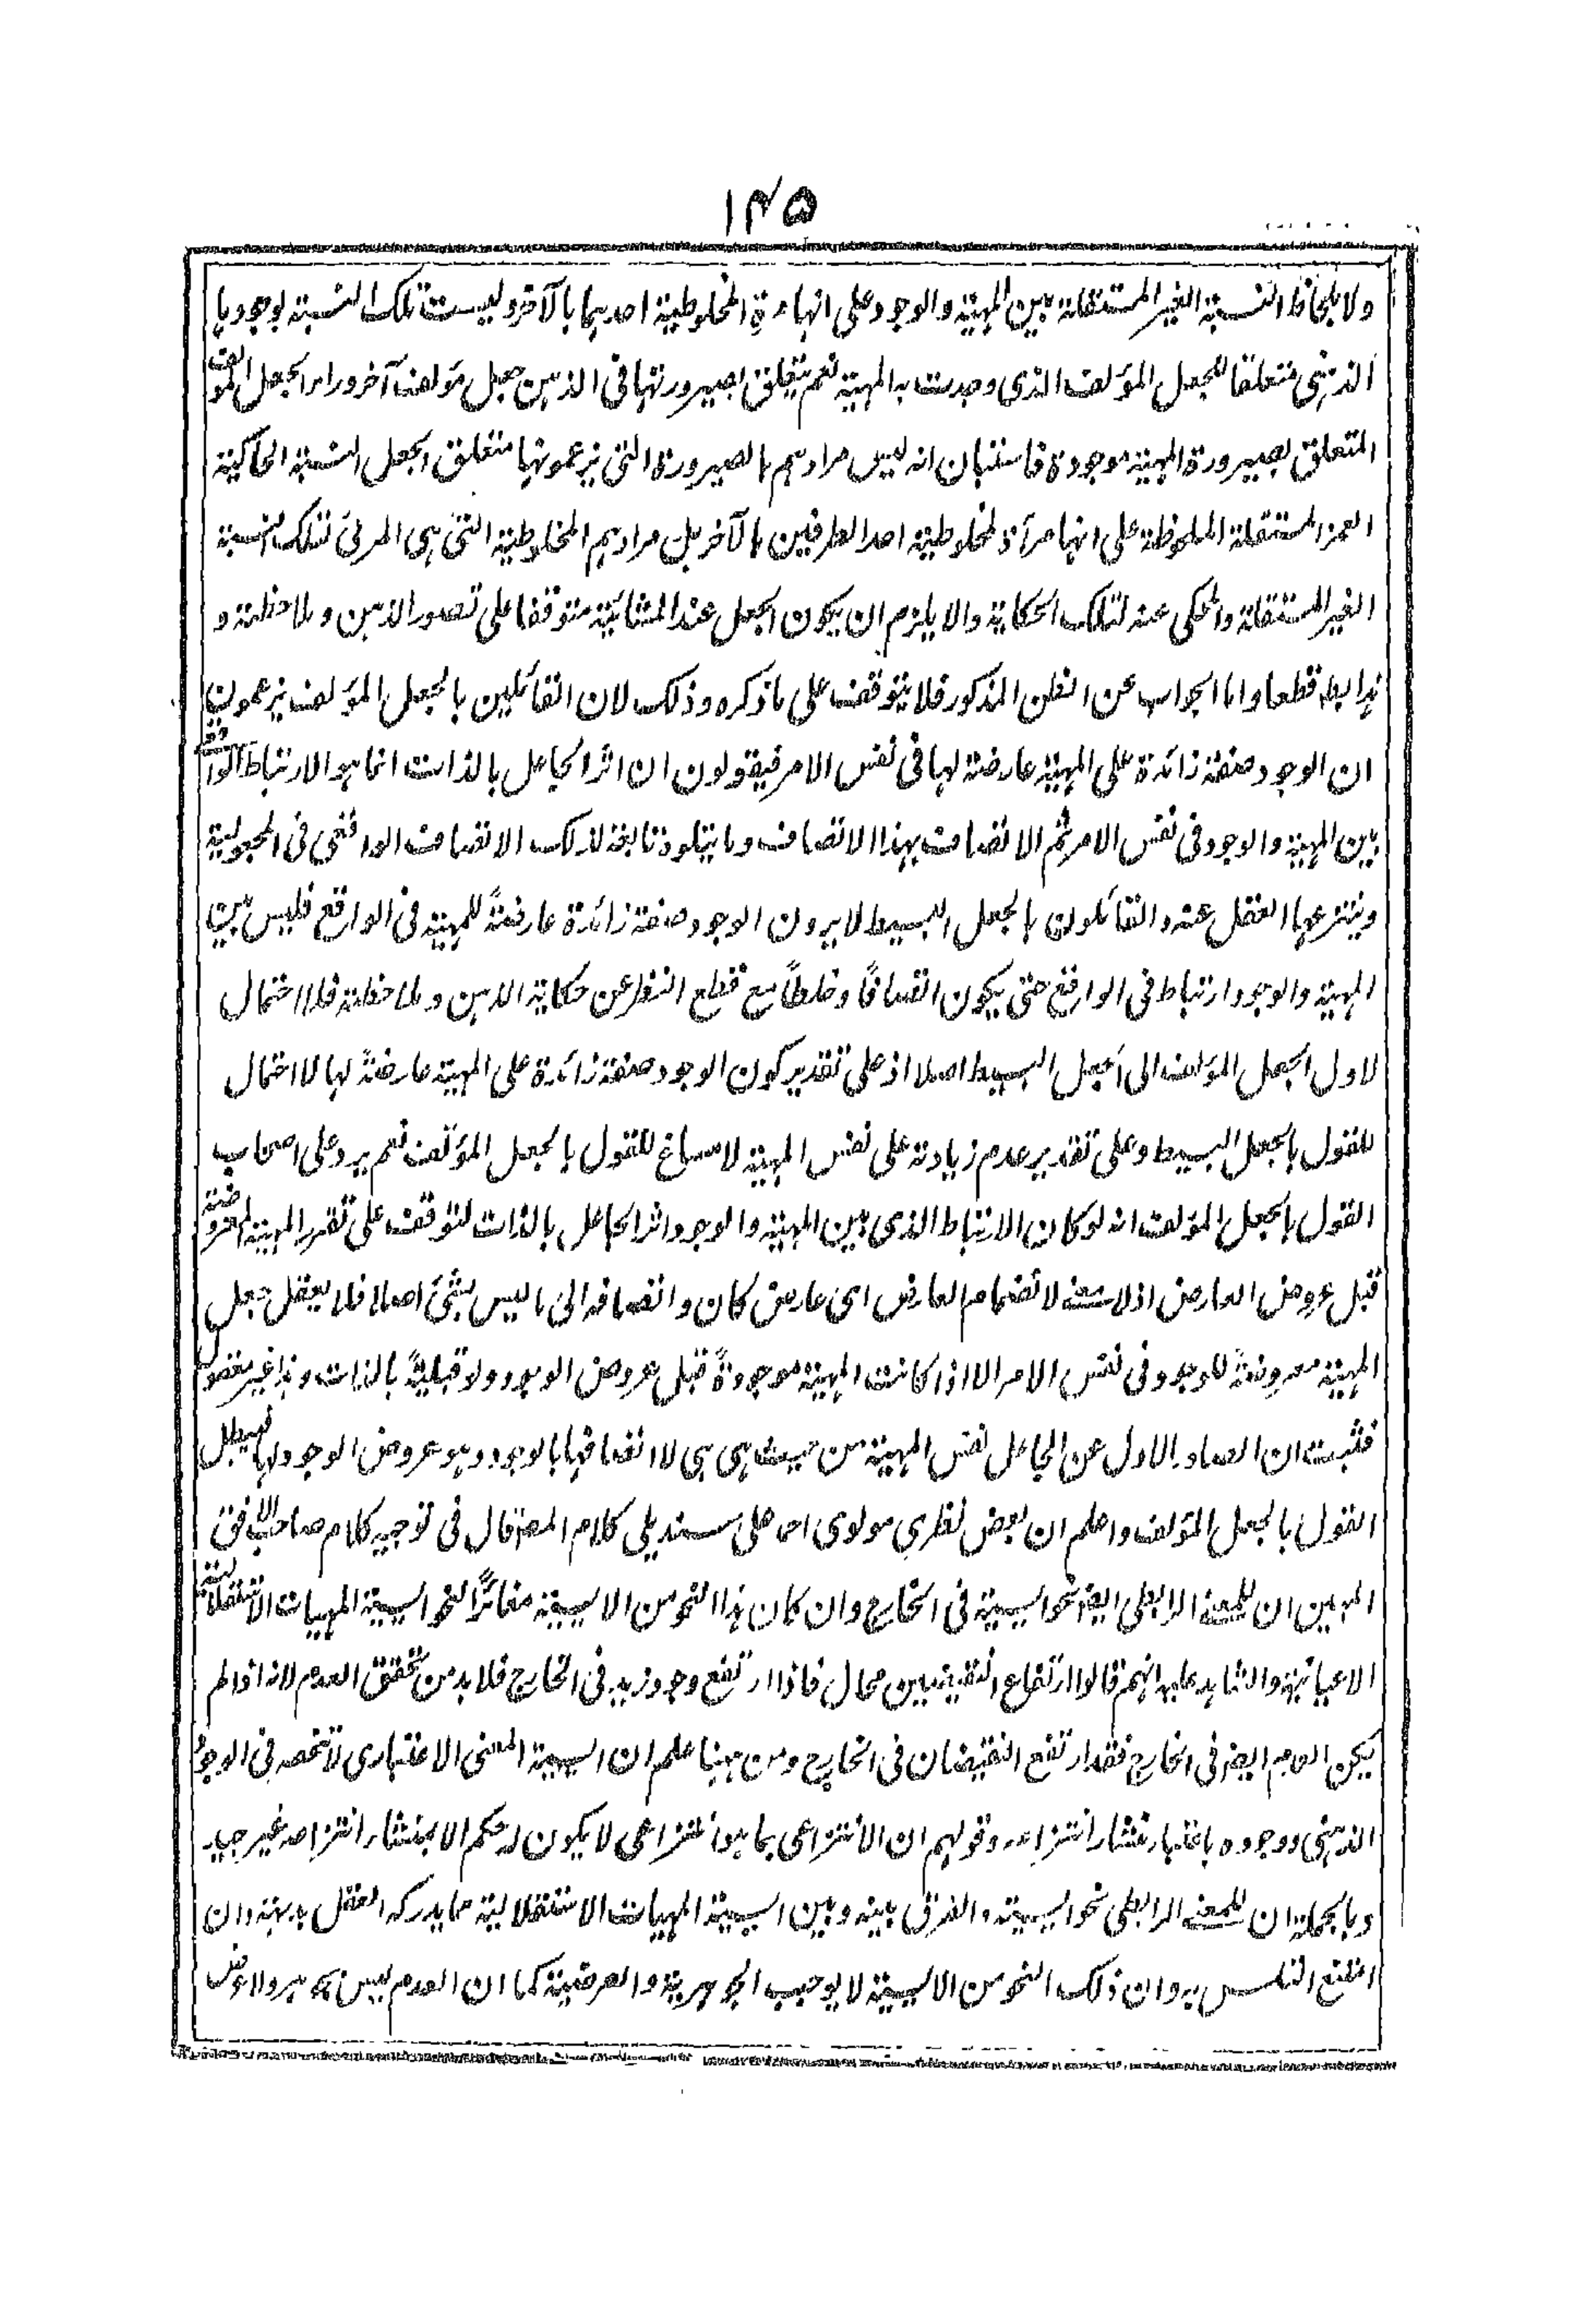 ١٤٥
ولا بلحاظ النسبة الغير المستقلة بين المهية والوجود على انها مرآة المخلوطية احديهما بالآخر وليست تلك النسبة بوجودها
الذهنى متعلقا للجعل المؤلف الذى وجدت به المهية نعم يتعلق بصيرورتها فى الذهن جعل مؤلف آخر وراء الجعل المؤلف
المتعلق بصيرورة المهية موجودة فاستبان انه ليس مرادهم بالصيرورة التى يزعمونها متعلق الجعل النسبة الحاكية
الغير المستقلة الملحوظة على انها مرآة لمخلوطية احد الطرفين بالآخر بل مرادهم المخلوطية التى هى المرئى لتلك النسبة
الغير المستقلة والمحكى عنه لتلك الحكاية والا يلزم ان يكون الجعل عند المشائية متوقفا على تصور الذهن وملاحظته و
هذا بط قطعا واما الجواب عن الظن المذكور فلا يتوقف على ما ذكره وذلك لان القائلين بالجعل المؤلف يزعمون
ان الوجود صفة زائدة على المهية عارضة لها فى نفس الامر فيقولون ان اثر الجاعل بالذات انما هو الارتباط الواقعى
بين المهية والوجود فى نفس الامر ثم الاتصاف بهذا الاتصاف وما يتلوه تابعة لذلك الاتصاف الواقعى فى المجعولية
وينتزعها العقل عنه والقائلون بالجعل البسيط لا يرون الوجود صفة زائدة عارضةً للمهية فى الواقع فليس بين
المهية والوجود ارتباط فى الواقع حتى يكون اتصافًا وخلطًا مع قطع النظر عن حكاية الذهن وملاحظته فلا احتمال
لاول الجعل المؤلف الى الجعل البسيط اصلا اذ على تقدير كون الوجود صفة زائدة على المهية عارضةً لها لا احتمال
للقول بالجعل البسيط وعلى تقدير عدم زيادته على نفس المهية لا مساغ للقول بالجعل المؤلف نعم يرد على اصحاب
القول بالجعل المؤلف انه لو كان الارتباط الذى بين المهية والوجود اثر الجاعل بالذات لتوقف على تقرر المهية المعروضة
قبل عروض العارض اذ لا معنى لانضمام العارض اى عارض كان واتصافه الى ما ليس بشئ اصلا فلا يعقل جعل
المهية معروضةً للوجود فى نفس الامر الا اذا كانت المهية موجودةً قبل عروض الوجود ولا قبليةً بالذات وهذا غير معقول
فثبت ان الصادر الاول عن الجاعل نفس المهية من حيث هى هى لا اتصافها بالوجود وهو عروض الوجود لها فيبطل
القول بالجعل المؤلف واعلم ان بعض نظرى مولوى احمد على سنديلى كلام المصنف قال فى توجيه كلام صاحب الافق
المبين ان للمعنى الرابطى ايضا نحو ايسية فى الخارج وان كان هذا النحو من الايسية مغائرًا لنحو ايسية المهيات الاستقلالية
الاعيانية والشاهد عليه انهم قالوا ارتفاع النقيضين محال فاذا ارتفع وجود زيد فى الخارج فلا بد من تحقق العدم لانه اذا لم
يكن العدم ايضا فى الخارج فقد ارتفع النقيضان فى الخارج ومن ههنا علم ان ايسية المعنى الاعتبارى لا تنحصر فى الوجود
الذهنى ووجوده باعتبار منشأ انتزاعه وقولهم ان الانتزاعى بما هو انتزاعى لا يكون له حكم الا بمنشاء انتزاعه غير جيد
وبالجملة ان للمعنى الرابطى نحو ايسية والفرق بينه وبين ايسية المهيات الاستقلالية مما يدركه العقل بديهة وان
اقنع النفس به وان ذلك النحو من الايسية لا يوجب الجوهرية والعرضية كما ان العدم ليس بجوهر ولا عرض